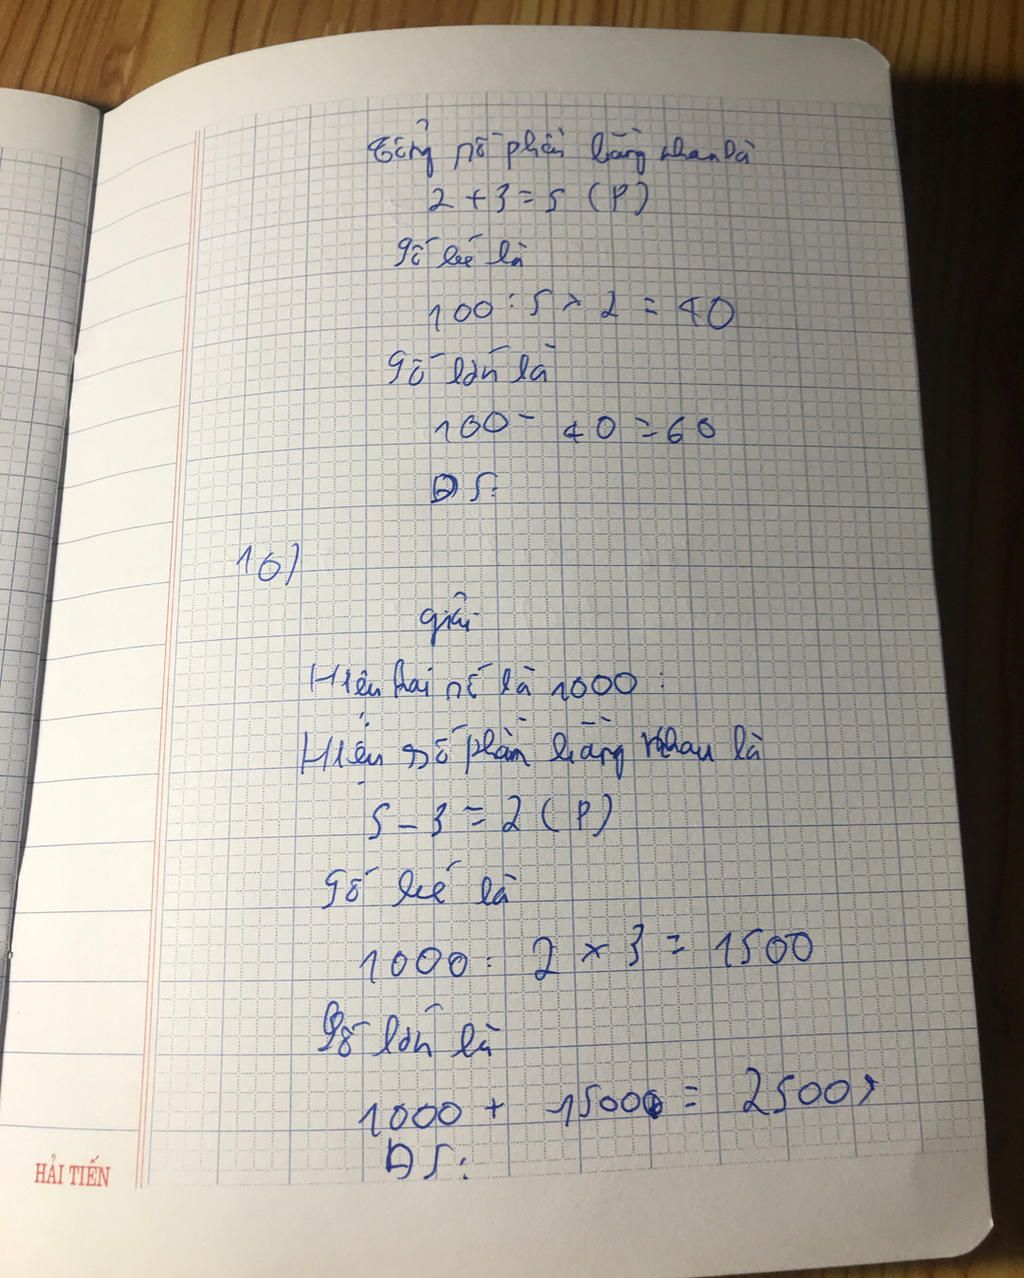 Tổng số phần bằng nhau là
2 + 3 = 5 (P)
Số bé là
100 : 5 × 2 = 40
Số lớn là
100 - 40 = 60
ĐS:
16)
giải
Hiệu hai số là 1000:
Hiệu số phần bằng nhau là
5 - 3 = 2 (P)
Số bé là
1000 : 2 × 3 = 1500
Số lớn là
1000 + 1500 = 2500
ĐS:
HẢI TIẾN